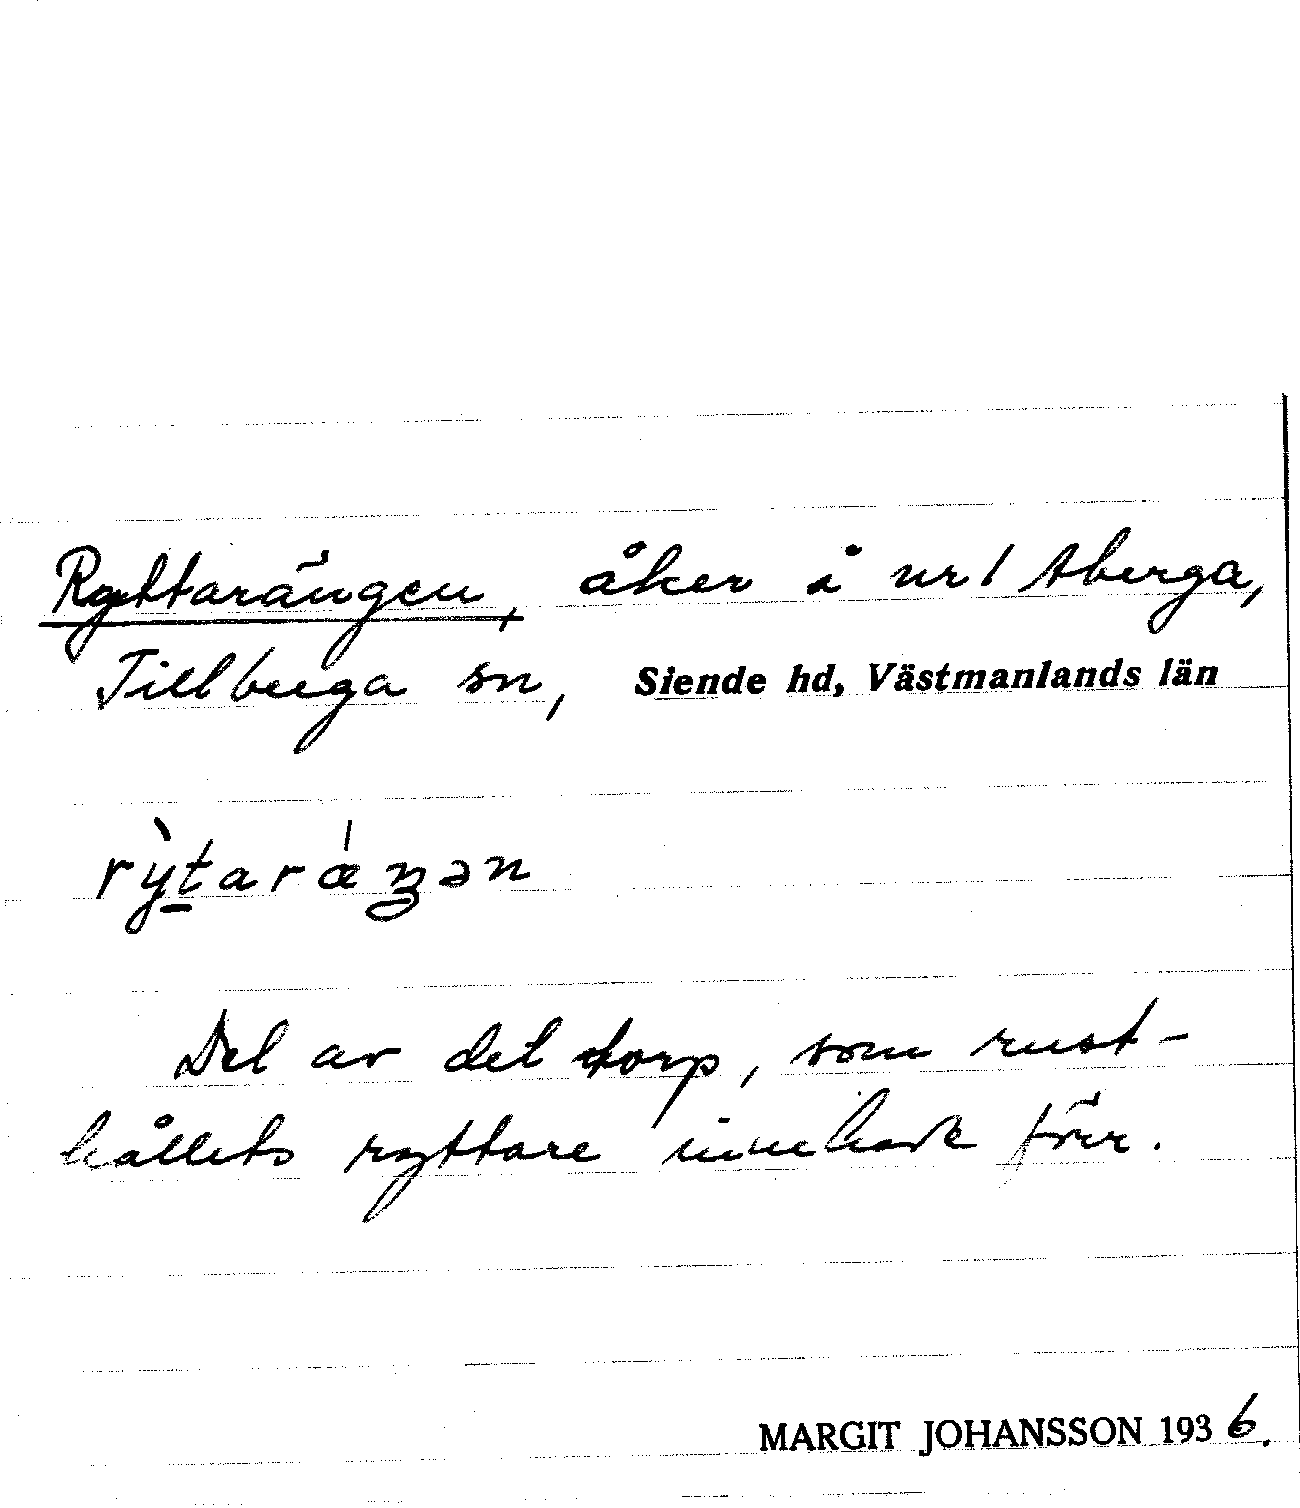 Ryttarängen, åker å nr 1 Åberga,
Tillberga sn, Siende hd, Västmanlands län
rỳtaræ̀ŋən
Del av det torp, som rust-
hållets ryttare innehade förr.
MARGIT JOHANSSON 1936.